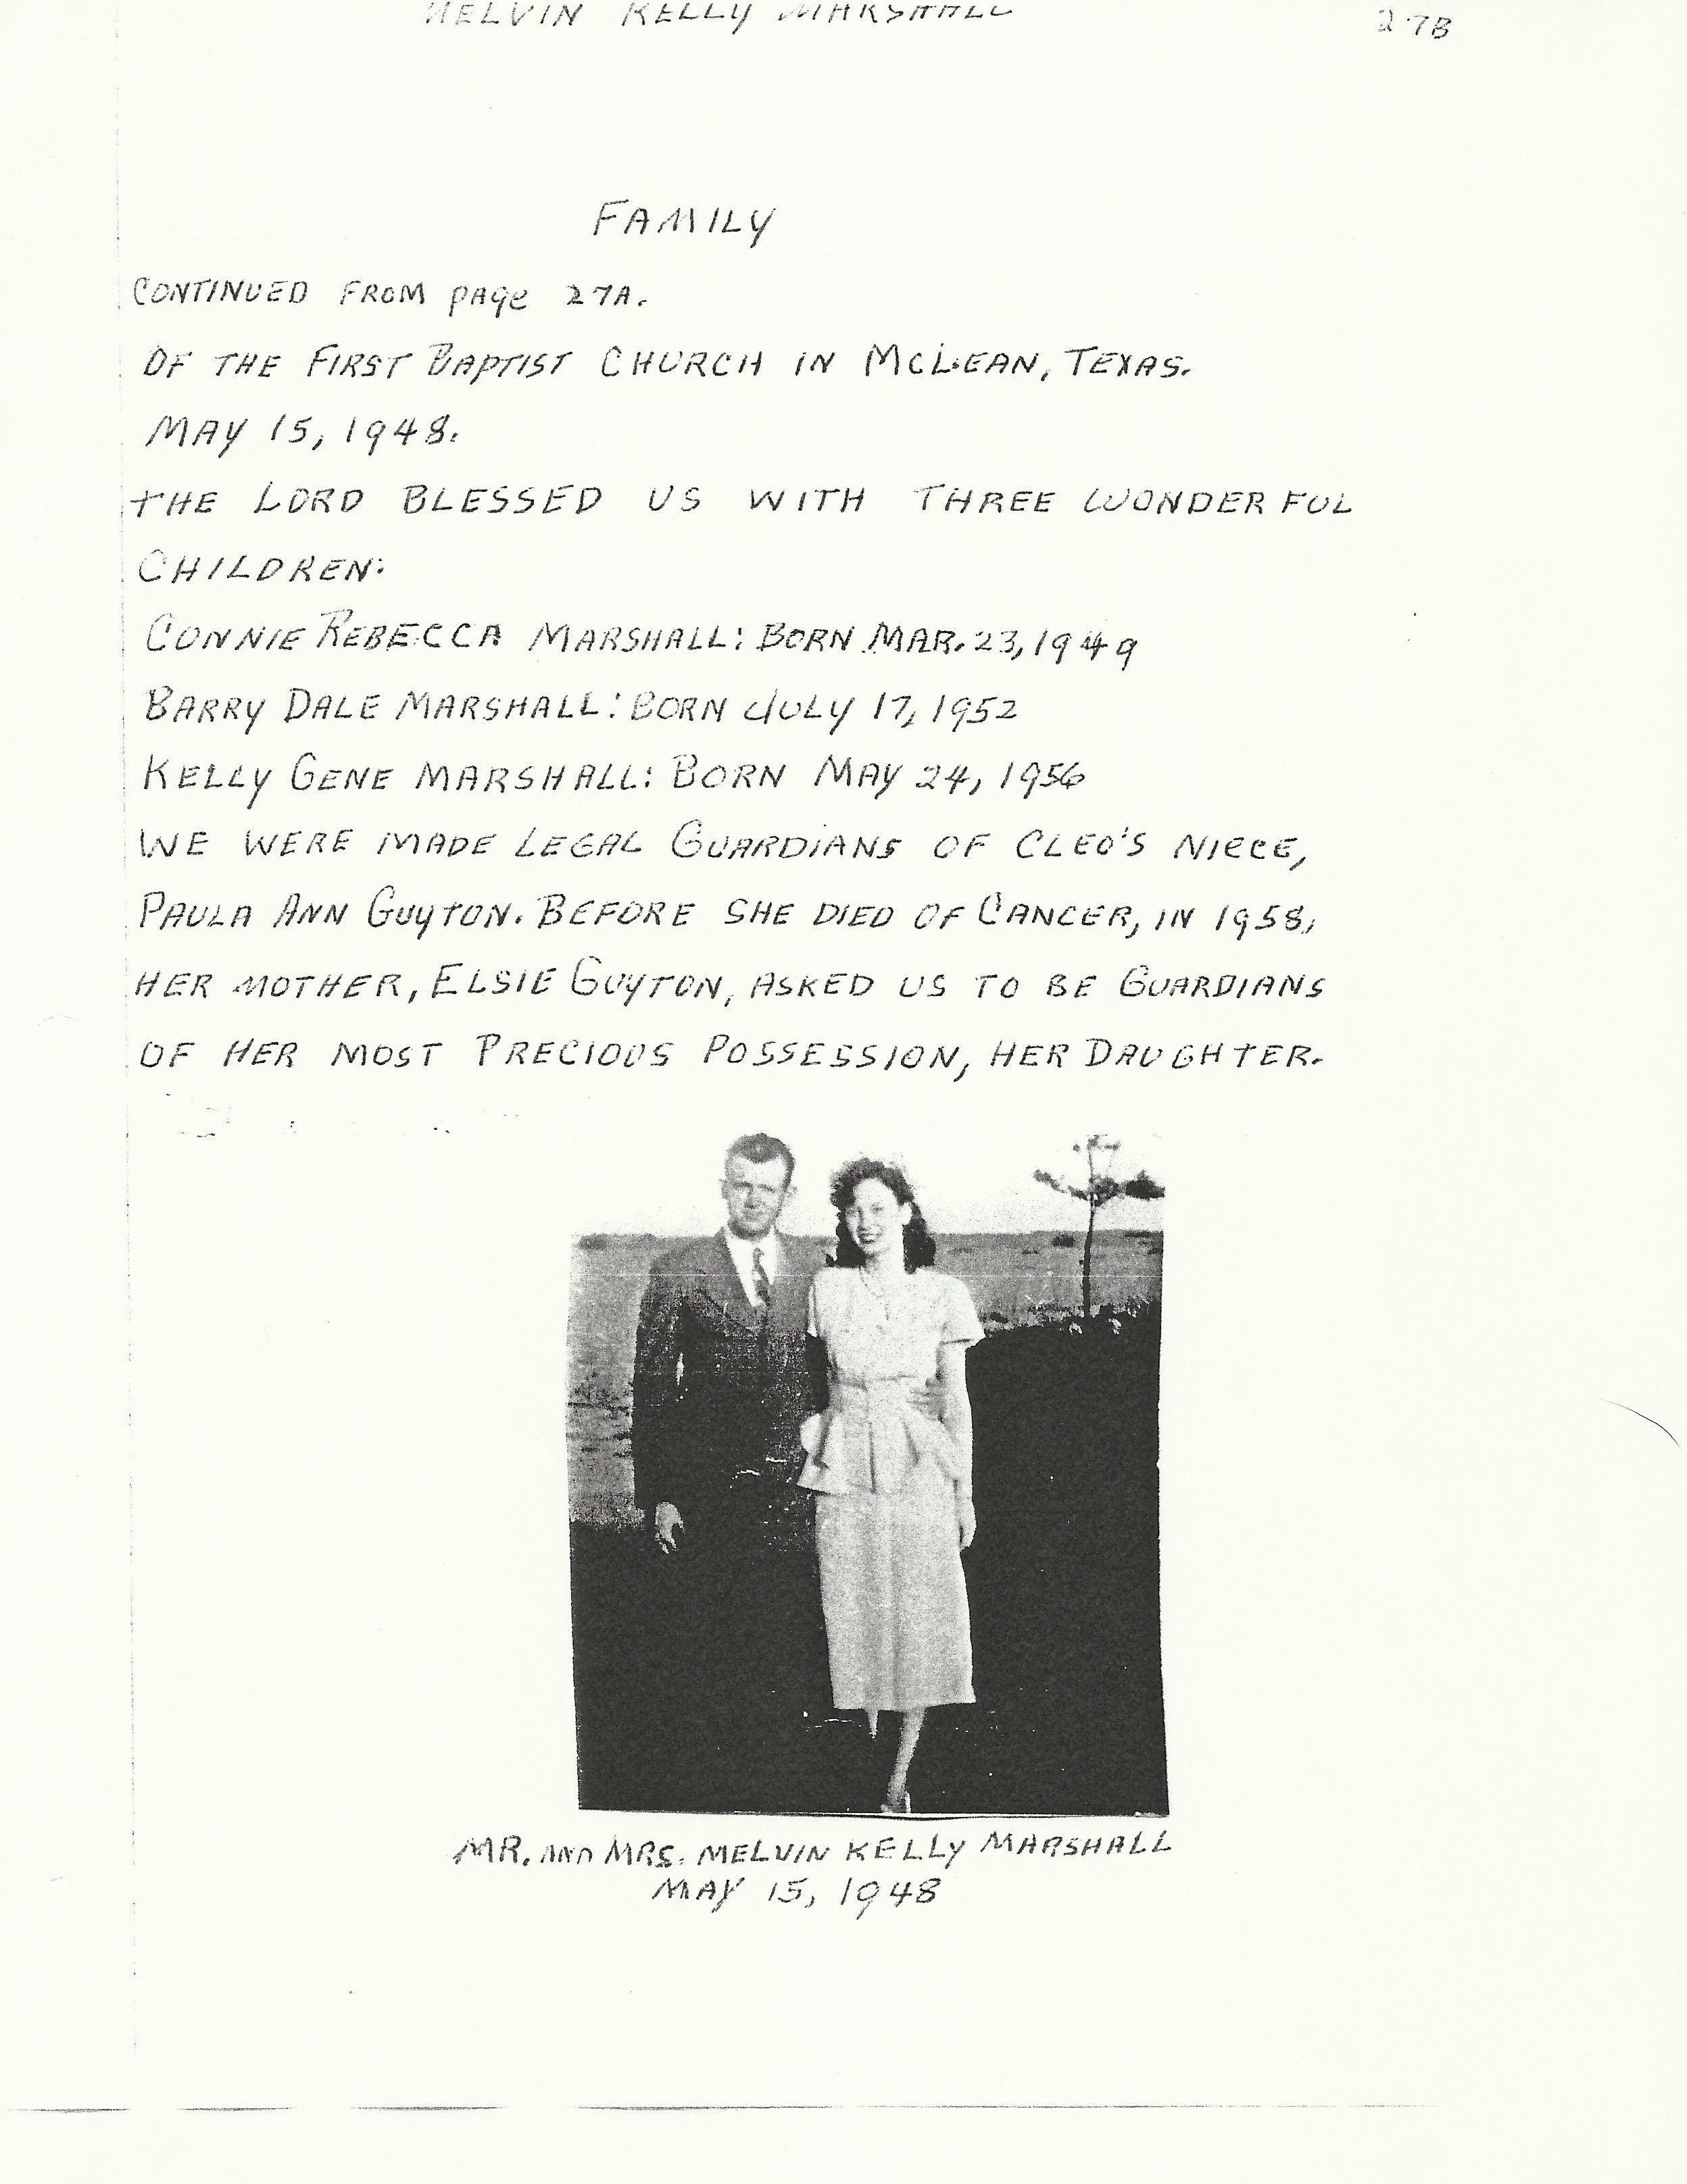 MELVIN KELLY MARSHALL 27B
FAMILY
CONTINUED FROM pAge 27A.
OF THE FIRST BAPTIST CHURCH IN McLEAN, TEXAS.
MAY 15, 1948.
THE LORD BLESSED US WITH THREE WONDERFUL
CHILDREN:
CONNIE REBECCA MARSHALL: BORN MAR. 23, 1949
BARRY DALE MARSHALL: BORN JULY 17, 1952
KELLY GENE MARSHALL: BORN MAY 24, 1956
WE WERE MADE LEGAL GUARDIANS OF CLEO'S NIECE,
PAULA ANN GUYTON. BEFORE SHE DIED OF CANCER, IN 1958,
HER MOTHER, ELSIE GUYTON, ASKED US TO BE GUARDIANS
OF HER MOST PRECIOUS POSSESSION, HER DAUGHTER.
MR. AND MRS. MELVIN KELLY MARSHALL
MAY 15, 1948